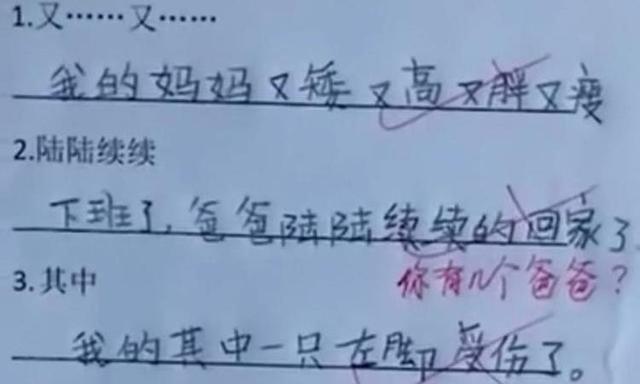 1.又……又……
我的妈妈又矮又高又胖又瘦
2.陆陆续续
下班了,爸爸陆陆续续的回家了
3.其中
你有几个爸爸?
我的其中一只左脚受伤了。